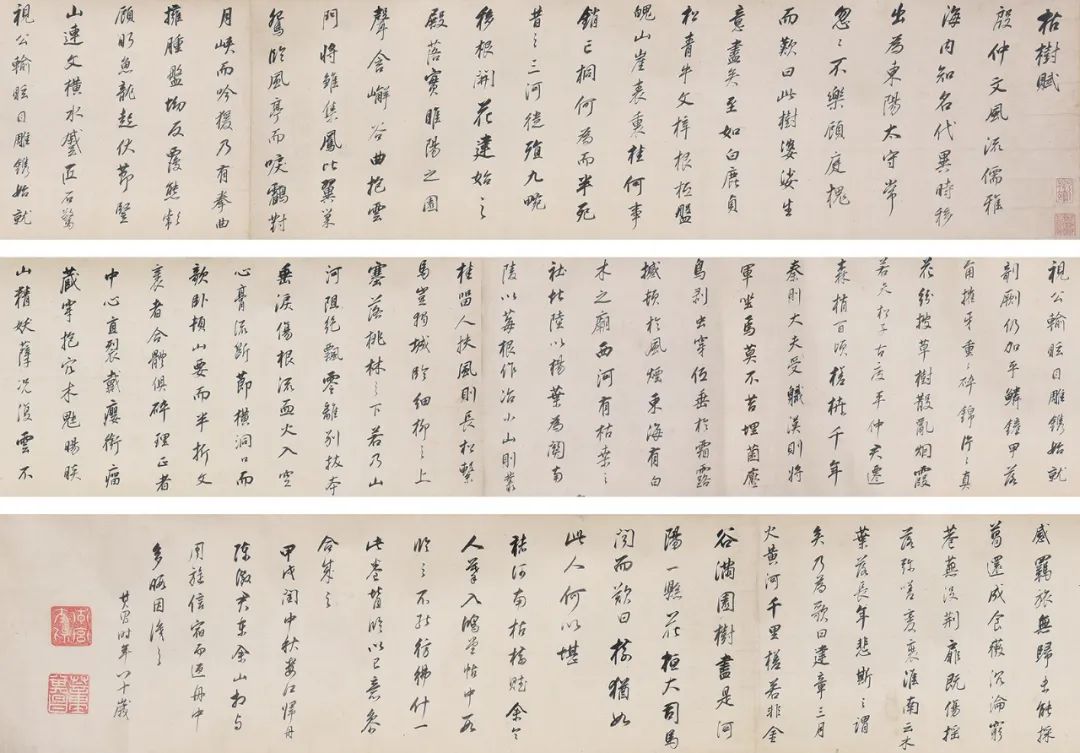 枯樹賦
殷仲文風流儒雅
海內知名代異時移
出為東陽太守常
忽忽不樂顧庭槐
而歎曰此樹婆娑生
意盡矣至如白鹿貞
松青牛文梓根柢盤
魄山崖表裏桂何事
銷亡桐何為而半死
昔之三河徙殖九畹
移根開花建始之
殿落實睢陽之園
聲含嶰谷曲抱雲
門將雛集鳳比翼巢
鴛臨風亭而唳鶴對
月峽而吟猨乃有拳曲
擁腫盤坳反覆熊彪
顧盼魚龍起伏節豎
山連文橫水蹙匠石驚
視公輸眩目雕鐫始就
視公輸眩目雕鐫始就
剞劂仍加平鱗鏟甲落
角摧牙重重碎錦片片真
花紛披草樹散亂烟霞
若夫松子古度平仲君遷
森梢百頃槎枿千年
秦則大夫受職漢則將
軍坐焉莫不苔埋菌壓
鳥剝虫穿低垂於霜露
撼頓於風煙東海有白
木之廟西河有枯桑之
社北陸以楊葉為關南
陵以莓根作冶小山則叢
桂留人扶風則長松繫
馬豈獨城臨細柳之上
塞落桃林之下若乃山
河阻絕飄零離別拔本
垂淚傷根流血火入空
心膏流斷節橫洞口而
欹臥頓山要而半折文
衺者合體俱碎理正者
中心直裂戴癭銜瘤
藏穿抱穴木魅睗睒
山精妖孽況復雲不
感羈旅無歸未能採
葛還成食薇沉淪窮
巷蕪沒荊扉既傷搖
落彌嗟變衰淮南云木
葉落長年悲斯之謂
矣乃為歌曰建章三月
火黃河千里槎若非金
谷滿園樹盡是河
陽一縣花桓大司馬
聞而歎曰樹猶如
此人何以堪
褚河南枯樹賦余令
人摹入鴻堂帖中每
臨之不能彷彿什一
此卷皆臨以己意參
合成之
甲戌閏中秋婁江歸舟
陳徵君東佘山相與
周旋信宿而返舟中
多暇因識之
其昌時年八十歲